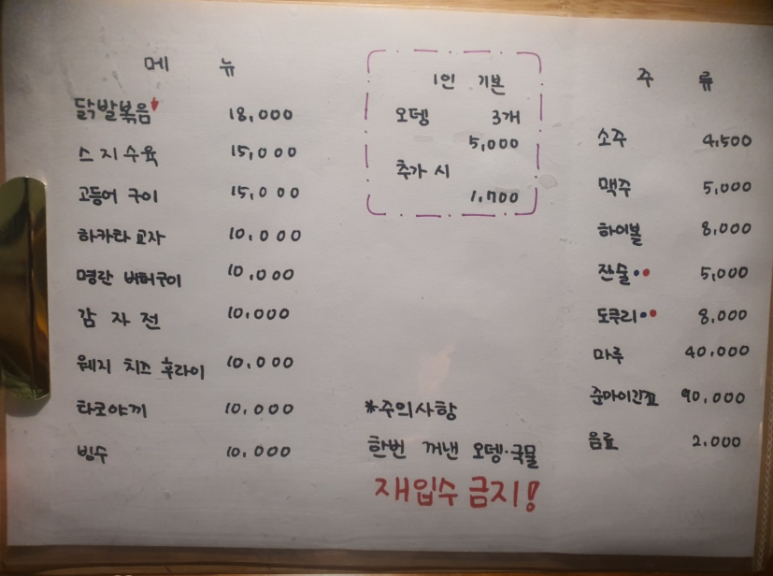 메 뉴
닭발볶음 18,000
스지수육 15,000
고등어 구이 15,000
하카타 교자 10,000
명란 버터구이 10,000
감자전 10,000
웨지 치즈 후라이 10,000
타코야끼 10,000
빙수 10,000
1인 기본
오뎅 3개
5,000
추가 시
1,700
*주의사항
한번 꺼낸 오뎅·국물
재입수 금지!
주 류
소주 4,500
맥주 5,000
하이볼 8,000
잔술 5,000
도쿠리 8,000
마루 40,000
준마이긴죠 90,000
음료 2,000